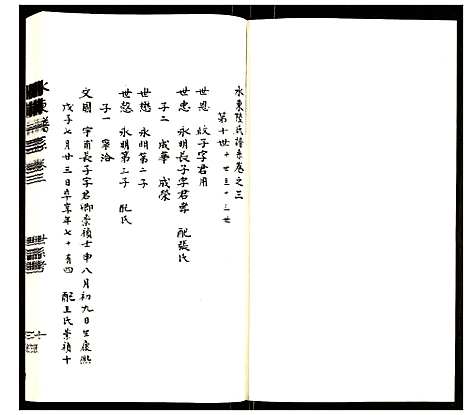 水東陸氏譜系卷之三
第十世十世至十三世
世恩 蛟子字君用
世忠 永明長子字君雲 配張氏
子二 成華 成榮
世懋 永明第二子
子一 寧洛
世慤 永明第三子 配氏
文園 宇甫長子字君卿崇禎壬申八月初九日生康熙
戊子七月廿三日卒享年七十有四 配王氏崇禎十
水東譜 卷三
世系